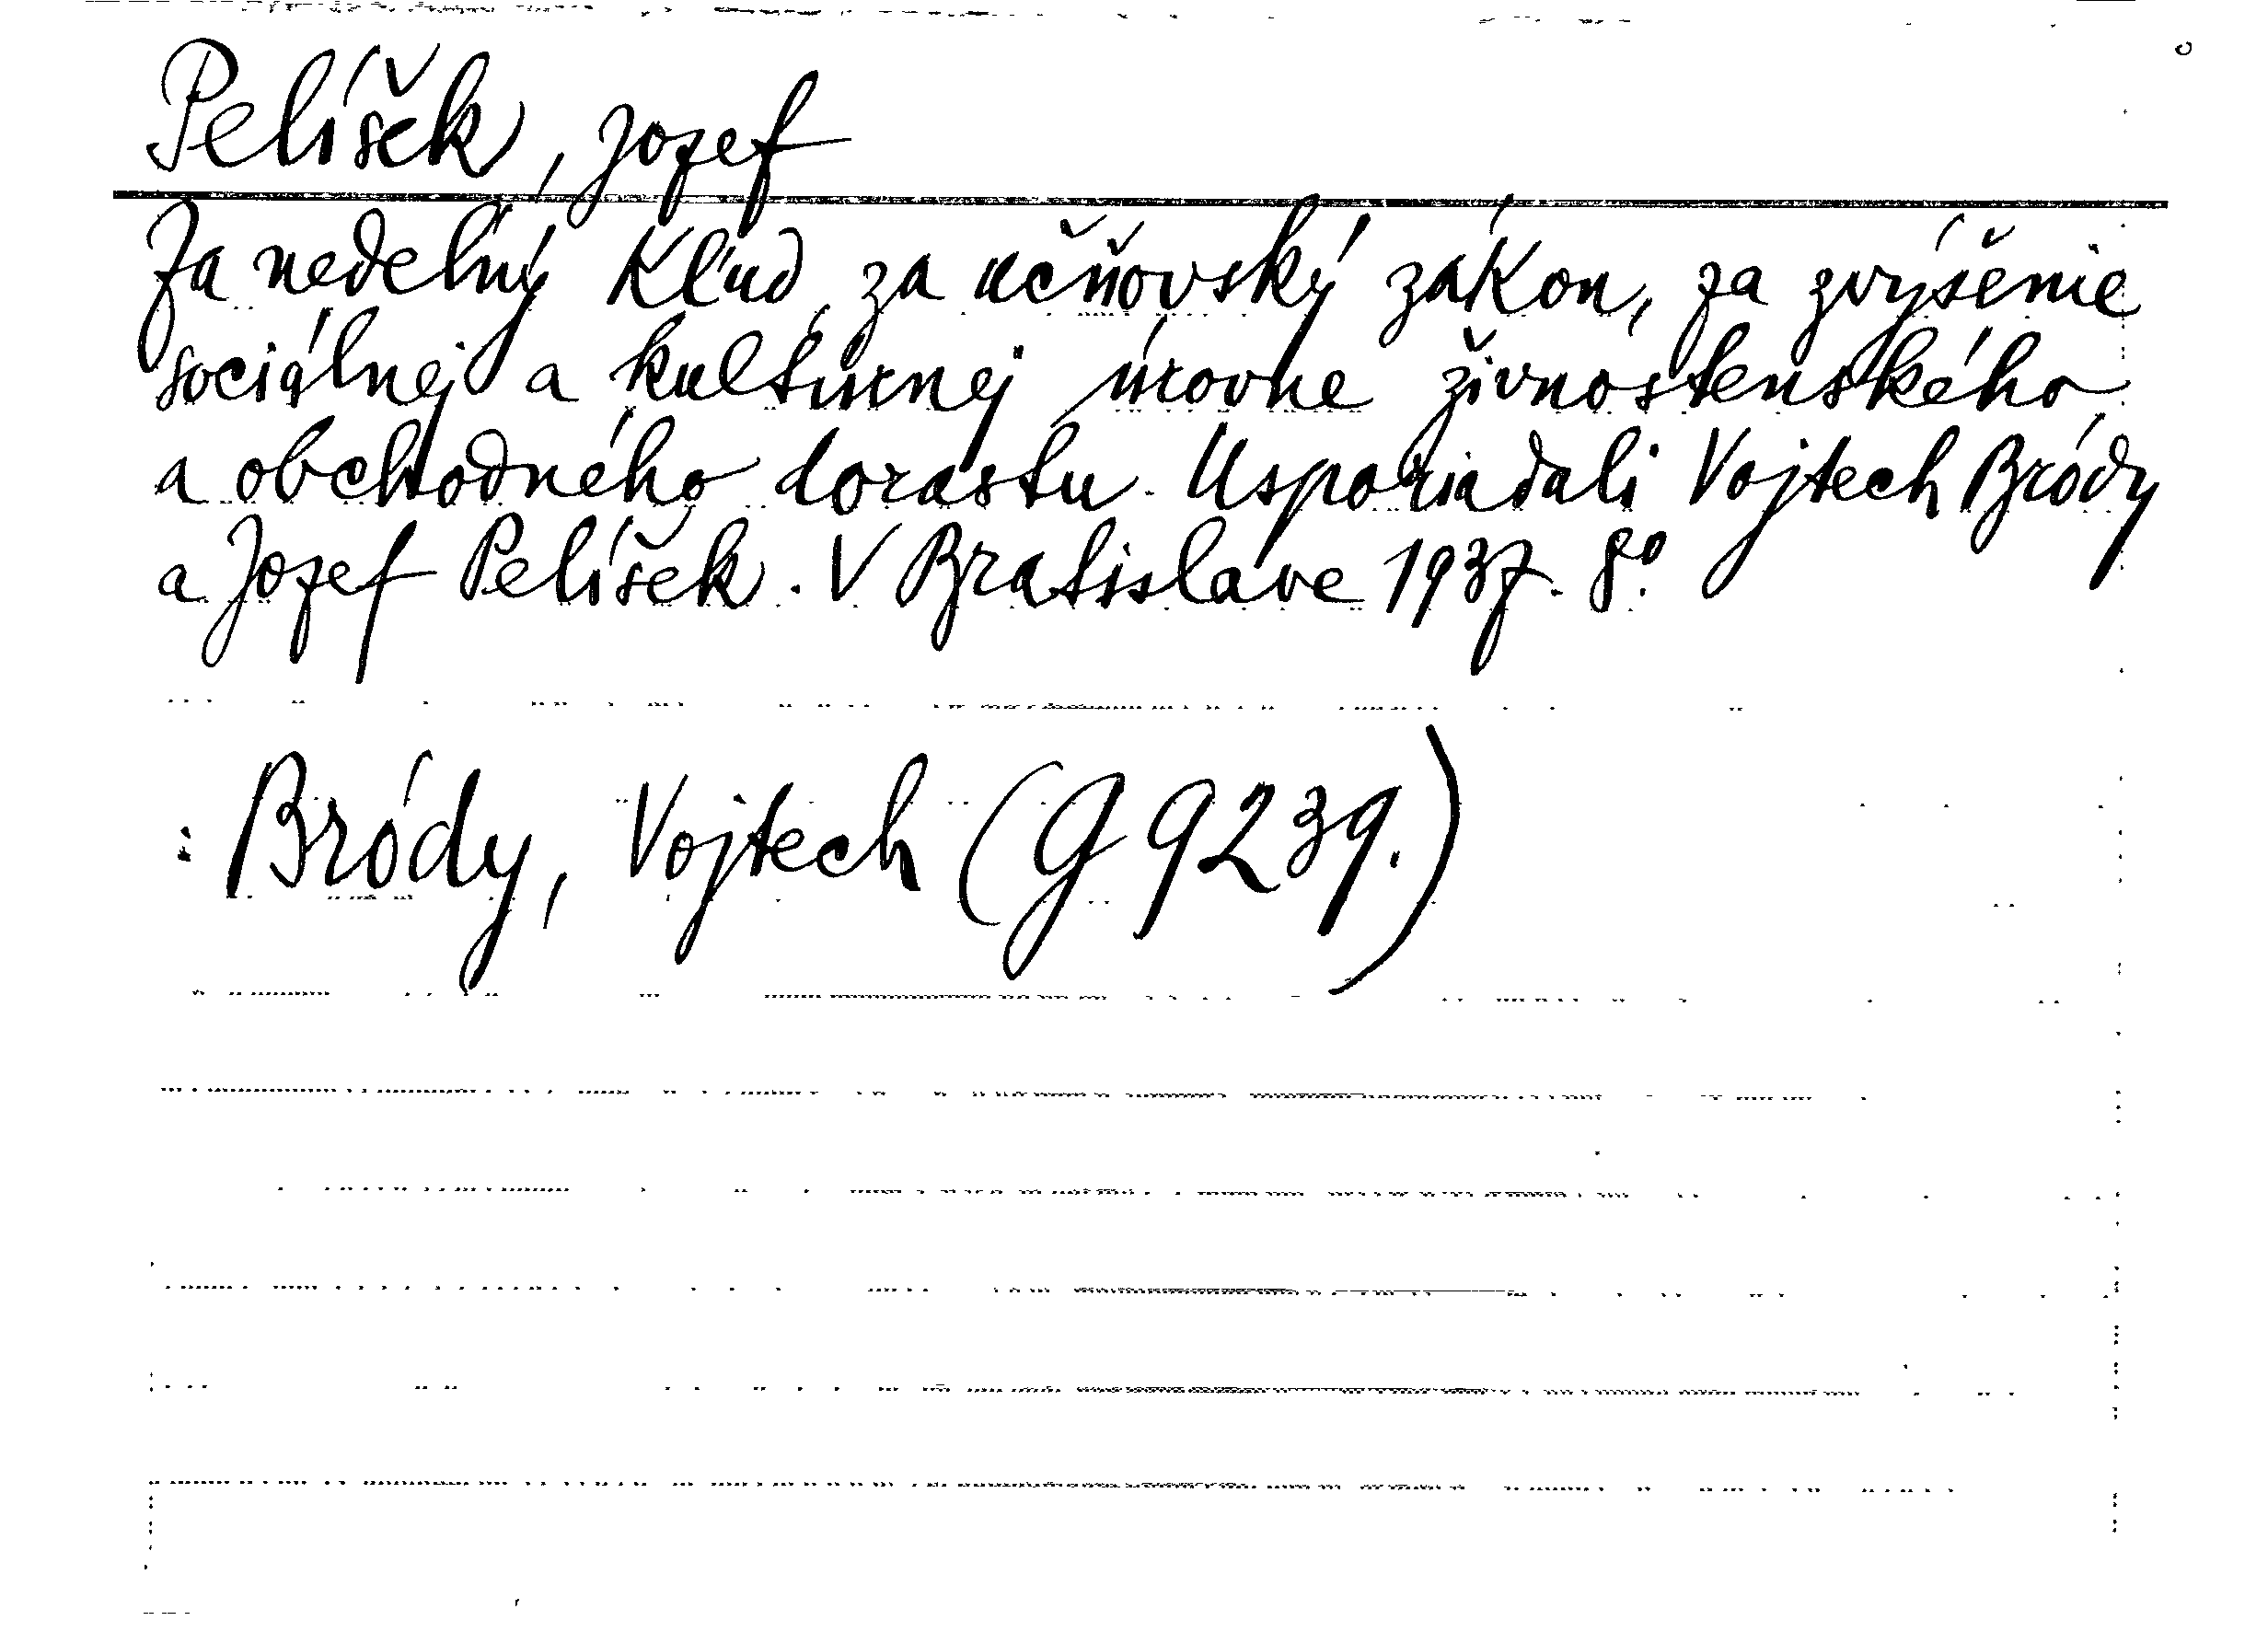 Pelíšek, Jozef
Za nedeľný kľud, za učňovský zákon, za zvýšenie
sociálnej a kultúrnej úrovne živnostenského
a obchodného dorastu. Usporiadali Vojtech Bródy
a Jozef Pelíšek. V Bratislave 1937. 8°.
: Bródy, Vojtech (G 9239.)